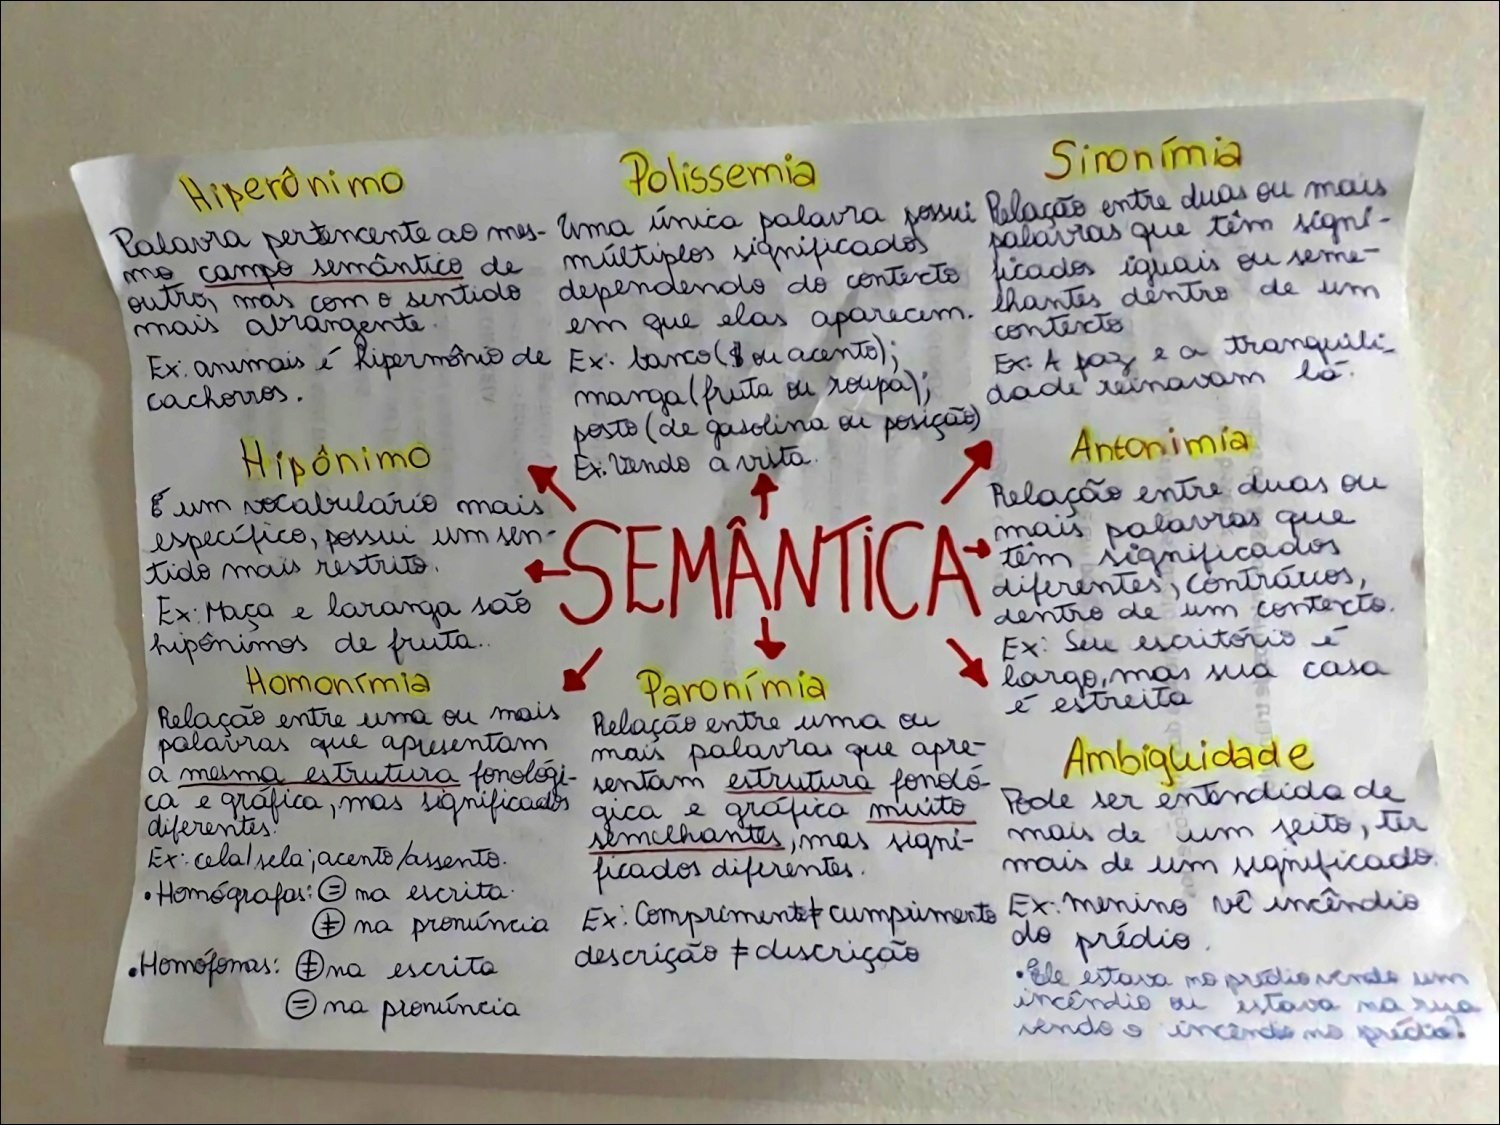 Hiperônimo
Palavra pertencente ao mes-
mo campo semântico de
outro, mas com o sentido
mais abrangente.
Ex: animais é hipermônio de
cachorros.
Hipônimo
É um vocabulário mais
específico, possui um sen-
tido mais restrito.
Ex: Maça e laranga são
hipônimos de fruta..
Homonímia
Relação entre uma ou mais
palavras que apresentam
a mesma estrutura fonológi-
ca e gráfica, mas significados
diferentes.
Ex: cela/sela; acento/assento.
•Homógrafas: = na escrita.
≠ na pronúncia
•Homófonas: ≠ na escrita
= na pronúncia
Polissemia
Uma única palavra possui
múltiplos significados
dependendo do contexto
em que elas aparecem.
Ex: banco ($ ou acento);
manga (fruta ou roupa);
posto (de gasolina ou posição)
Ex: Vendo a vista.
SEMÂNTICA
Paronímia
Relação entre uma ou
mais palavras que apre-
sentam estrutura fonoló-
gica e gráfica muito
semelhantes, mas signi-
ficados diferentes.
Ex: Comprimento≠cumprimento
descrição ≠ discrição
Sinonímia
Relação entre duas ou mais
palavras que têm signi-
ficados iguais ou seme-
lhantes dentro de um
contexto
Ex: A paz e a tranquili-
dade reinavam lá.
Antonimia
Relação entre duas ou
mais palavras que
têm significados
diferentes, contrários,
dentro de um contexto.
Ex: Seu escritório é
largo, mas sua casa
é estreita
Ambiguidade
Pode ser entendida de
mais de um jeito, ter
mais de um significado.
Ex: menino vê incêndio
do prédio.
•Ele estava no prédio vendo um
incêndio ou estava na rua
vendo o incêndio no prédio?